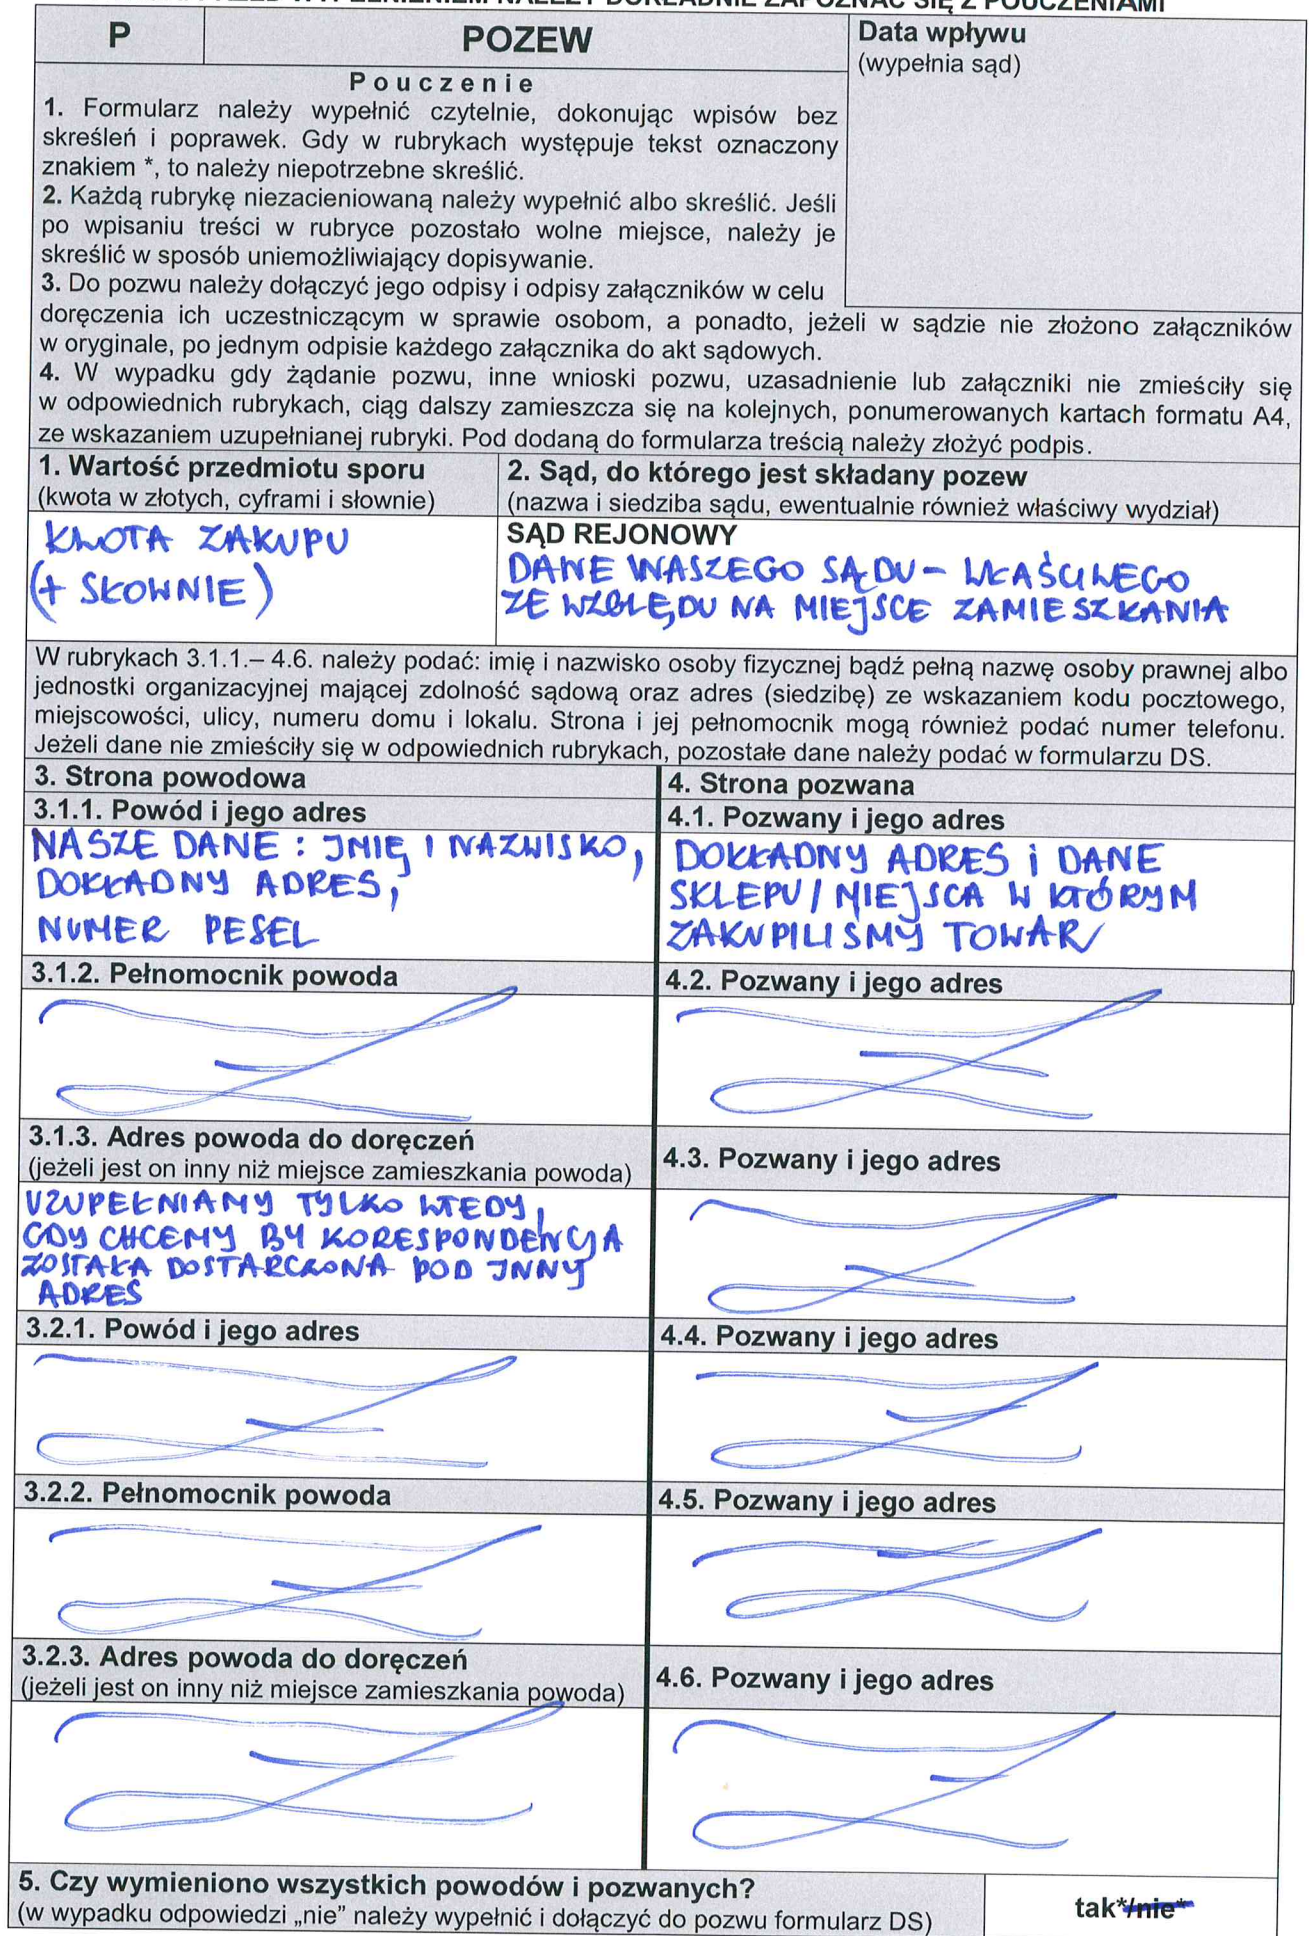 PRZED WYPEŁNIENIEM NALEŻY DOKŁADNIE ZAPOZNAĆ SIĘ Z POUCZENIAMI
P
POZEW
Data wpływu
(wypełnia sąd)
Pouczenie
1. Formularz należy wypełnić czytelnie, dokonując wpisów bez
skreśleń i poprawek. Gdy w rubrykach występuje tekst oznaczony
znakiem *, to należy niepotrzebne skreślić.
2. Każdą rubrykę niezacieniowaną należy wypełnić albo skreślić. Jeśli
po wpisaniu treści w rubryce pozostało wolne miejsce, należy je
skreślić w sposób uniemożliwiający dopisywanie.
3. Do pozwu należy dołączyć jego odpisy i odpisy załączników w celu
doręczenia ich uczestniczącym w sprawie osobom, a ponadto, jeżeli w sądzie nie złożono załączników
w oryginale, po jednym odpisie każdego załącznika do akt sądowych.
4. W wypadku gdy żądanie pozwu, inne wnioski pozwu, uzasadnienie lub załączniki nie zmieściły się
w odpowiednich rubrykach, ciąg dalszy zamieszcza się na kolejnych, ponumerowanych kartach formatu A4,
ze wskazaniem uzupełnianej rubryki. Pod dodaną do formularza treścią należy złożyć podpis.
1. Wartość przedmiotu sporu
(kwota w złotych, cyframi i słownie)
KWOTA ZAKUPU
(+ SŁOWNIE)
2. Sąd, do którego jest składany pozew
(nazwa i siedziba sądu, ewentualnie również właściwy wydział)
SĄD REJONOWY
DANE WASZEGO SĄDU - WŁAŚCIWEGO
ZE WZGLĘDU NA MIEJSCE ZAMIESZKANIA
W rubrykach 3.1.1.– 4.6. należy podać: imię i nazwisko osoby fizycznej bądź pełną nazwę osoby prawnej albo
jednostki organizacyjnej mającej zdolność sądową oraz adres (siedzibę) ze wskazaniem kodu pocztowego,
miejscowości, ulicy, numeru domu i lokalu. Strona i jej pełnomocnik mogą również podać numer telefonu.
Jeżeli dane nie zmieściły się w odpowiednich rubrykach, pozostałe dane należy podać w formularzu DS.
3. Strona powodowa
4. Strona pozwana
3.1.1. Powód i jego adres
4.1. Pozwany i jego adres
NASZE DANE : IMIĘ I NAZWISKO,
DOKŁADNY ADRES,
NUMER PESEL
DOKŁADNY ADRES i DANE
SKLEPU / MIEJSCA W KTÓRYM
ZAKUPILIŚMY TOWAR
3.1.2. Pełnomocnik powoda
4.2. Pozwany i jego adres
3.1.3. Adres powoda do doręczeń
(jeżeli jest on inny niż miejsce zamieszkania powoda)
4.3. Pozwany i jego adres
UZUPEŁNIAMY TYLKO WTEDY,
GDY CHCEMY BY KORESPONDENCJA
ZOSTAŁA DOSTARCZONA POD INNY
ADRES
3.2.1. Powód i jego adres
4.4. Pozwany i jego adres
3.2.2. Pełnomocnik powoda
4.5. Pozwany i jego adres
3.2.3. Adres powoda do doręczeń
(jeżeli jest on inny niż miejsce zamieszkania powoda)
4.6. Pozwany i jego adres
5. Czy wymieniono wszystkich powodów i pozwanych?
(w wypadku odpowiedzi „nie” należy wypełnić i dołączyć do pozwu formularz DS)
tak*/nie*